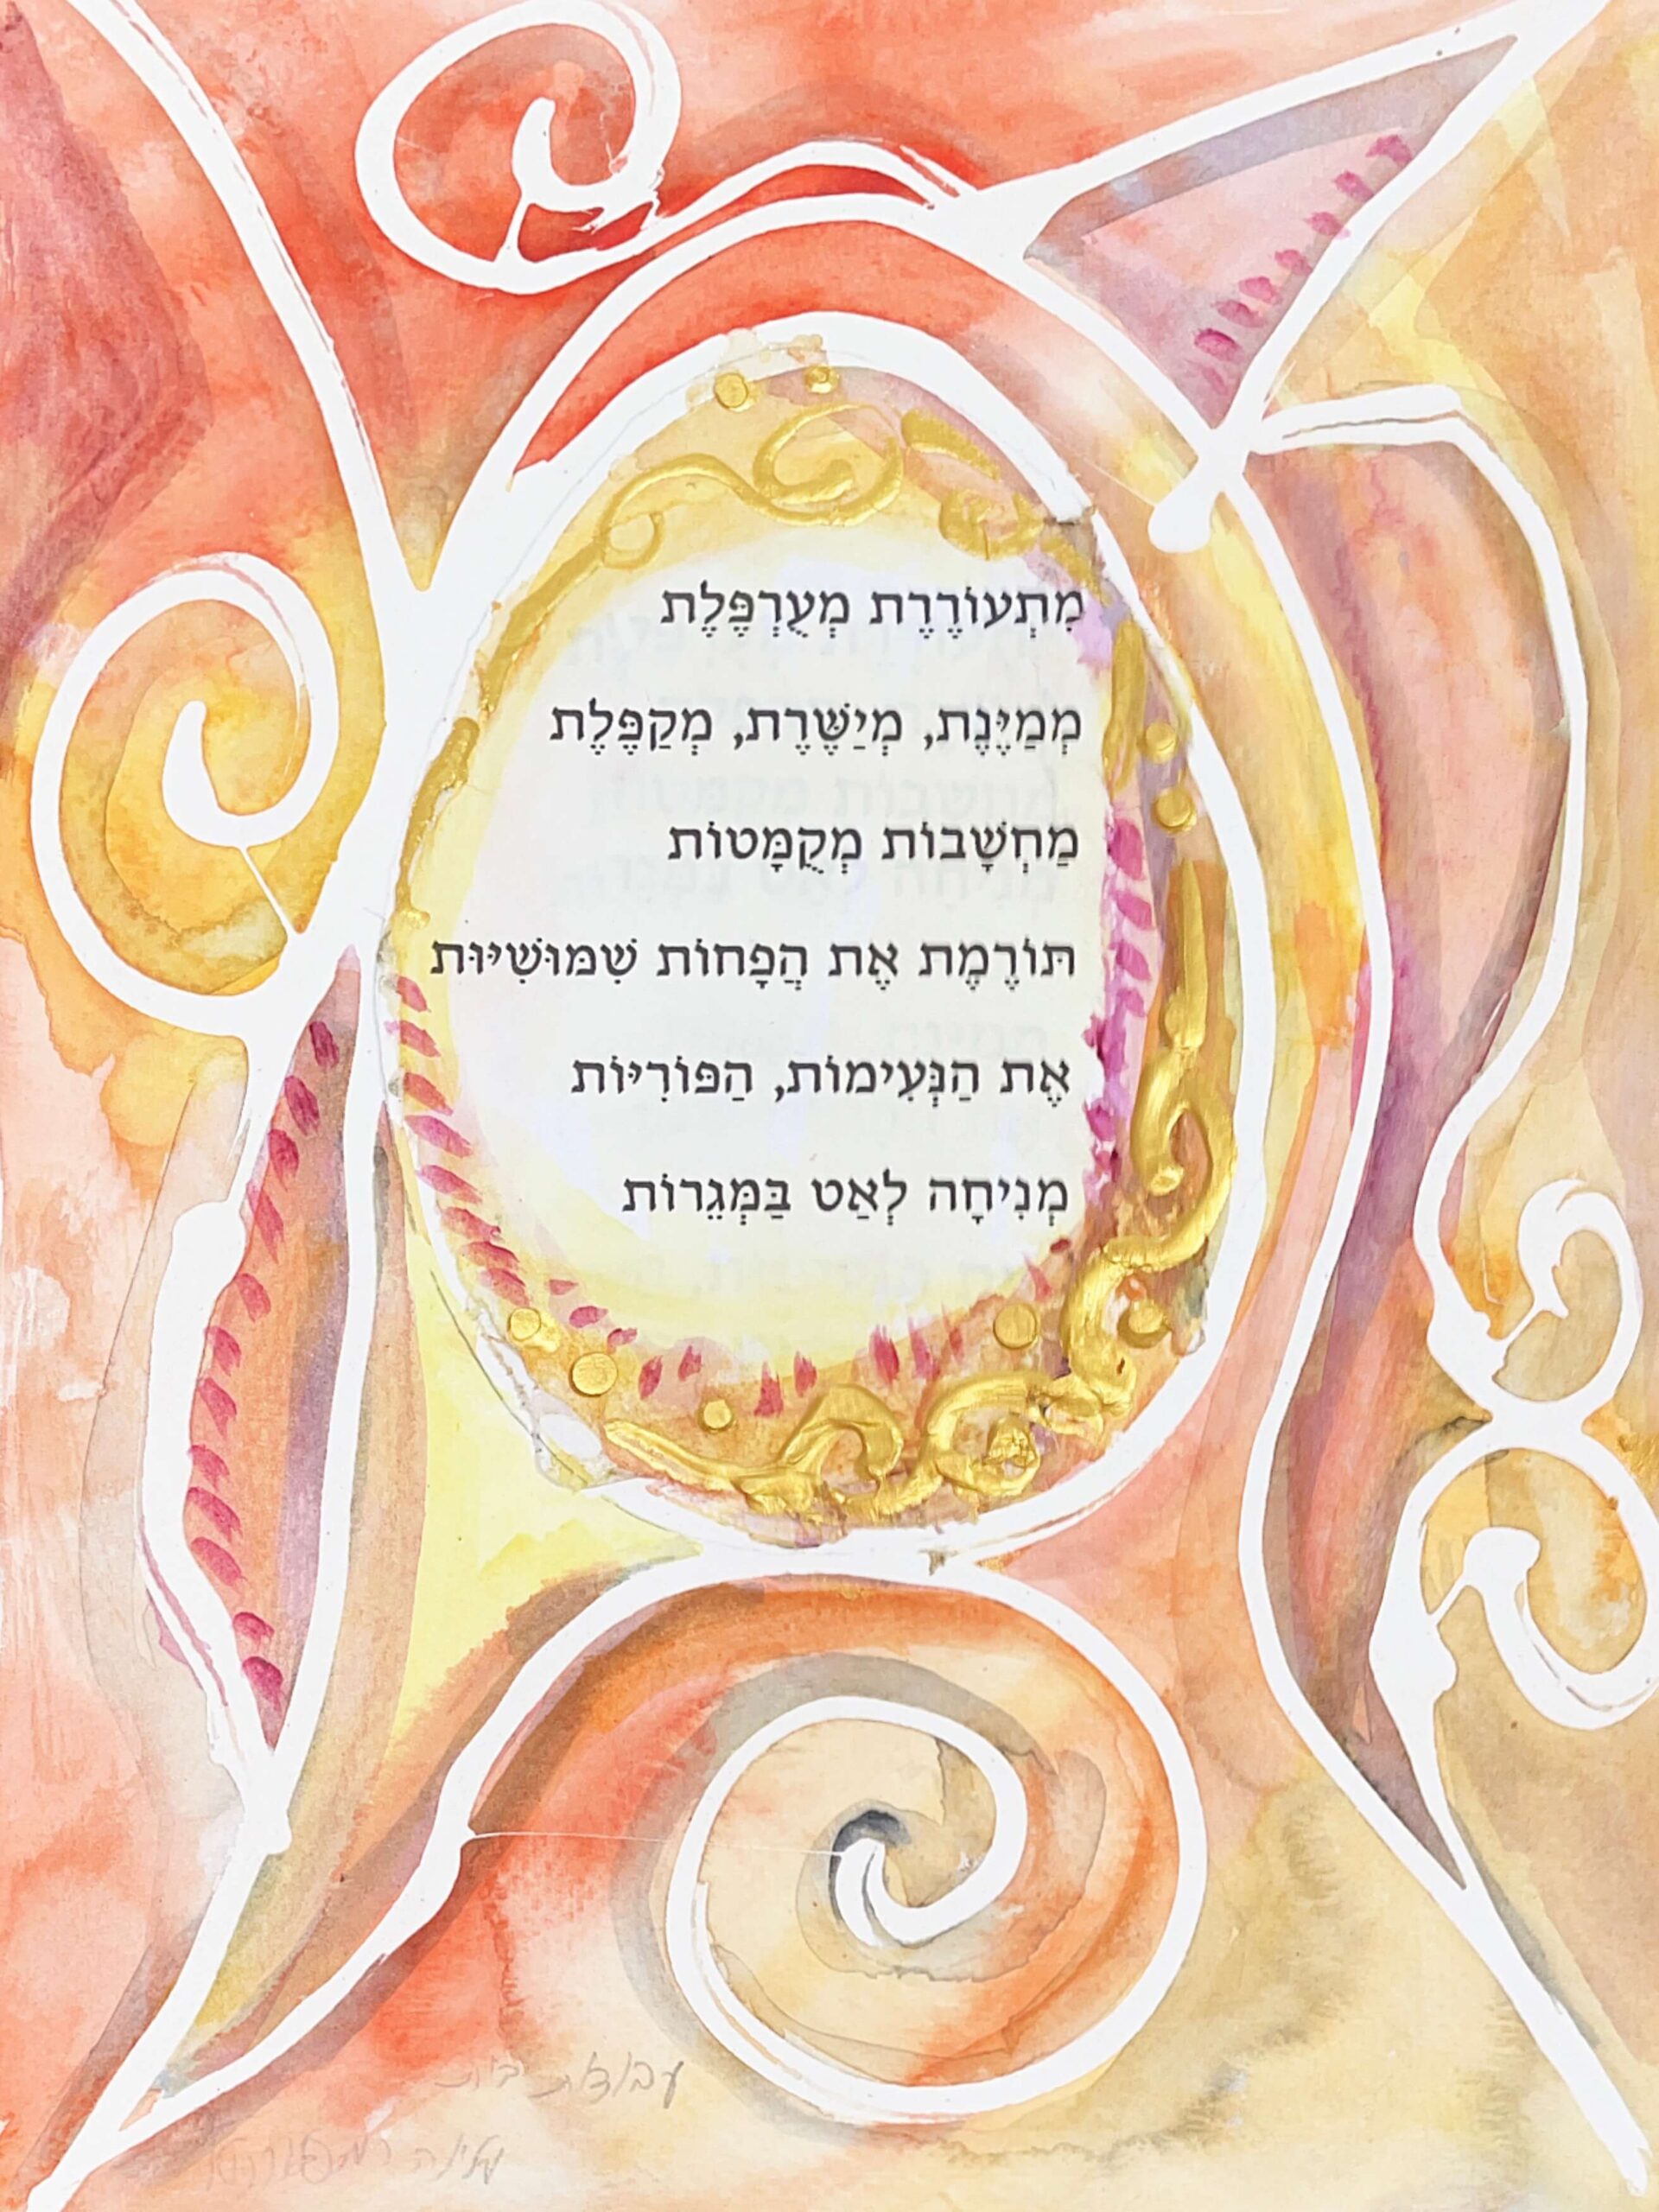 מִתְעוֹרֶרֶת מְעֻרְפֶּלֶת
מְמַיֶּנֶת, מְיַשֶּׁרֶת, מְקַפֶּלֶת
מַחְשָׁבוֹת מְקֻמָּטוֹת
תּוֹרֶמֶת אֶת הֲפָחוֹת שִׁמּוּשִׁיּוֹת
אֶת הַנְּעִימוֹת, הַפּוֹרִיּוֹת
מְנִיחָה לְאַט בַּמְּגֵרוֹת
עבודת בית